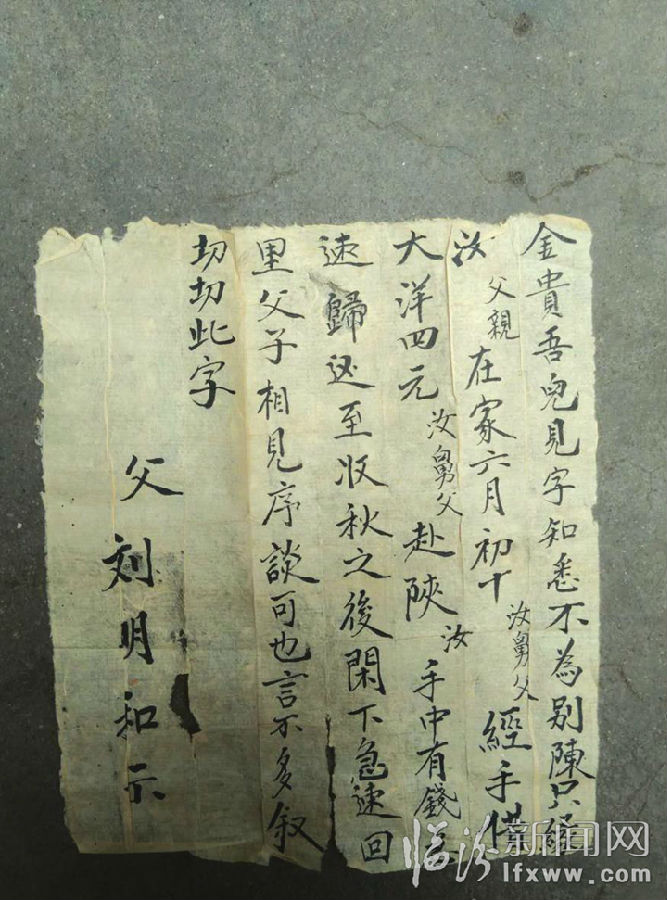 金貴吾兒見字知悉不為別陳只經
汝父親在家六月初十汝舅父經手借
大洋四元汝舅父赴陝汝手中有錢
速歸还至收秋之後閑下急速回
里父子相見序談可也言不多叙
切切此字
父刘明和示
临汾新闻网
lfxww.com